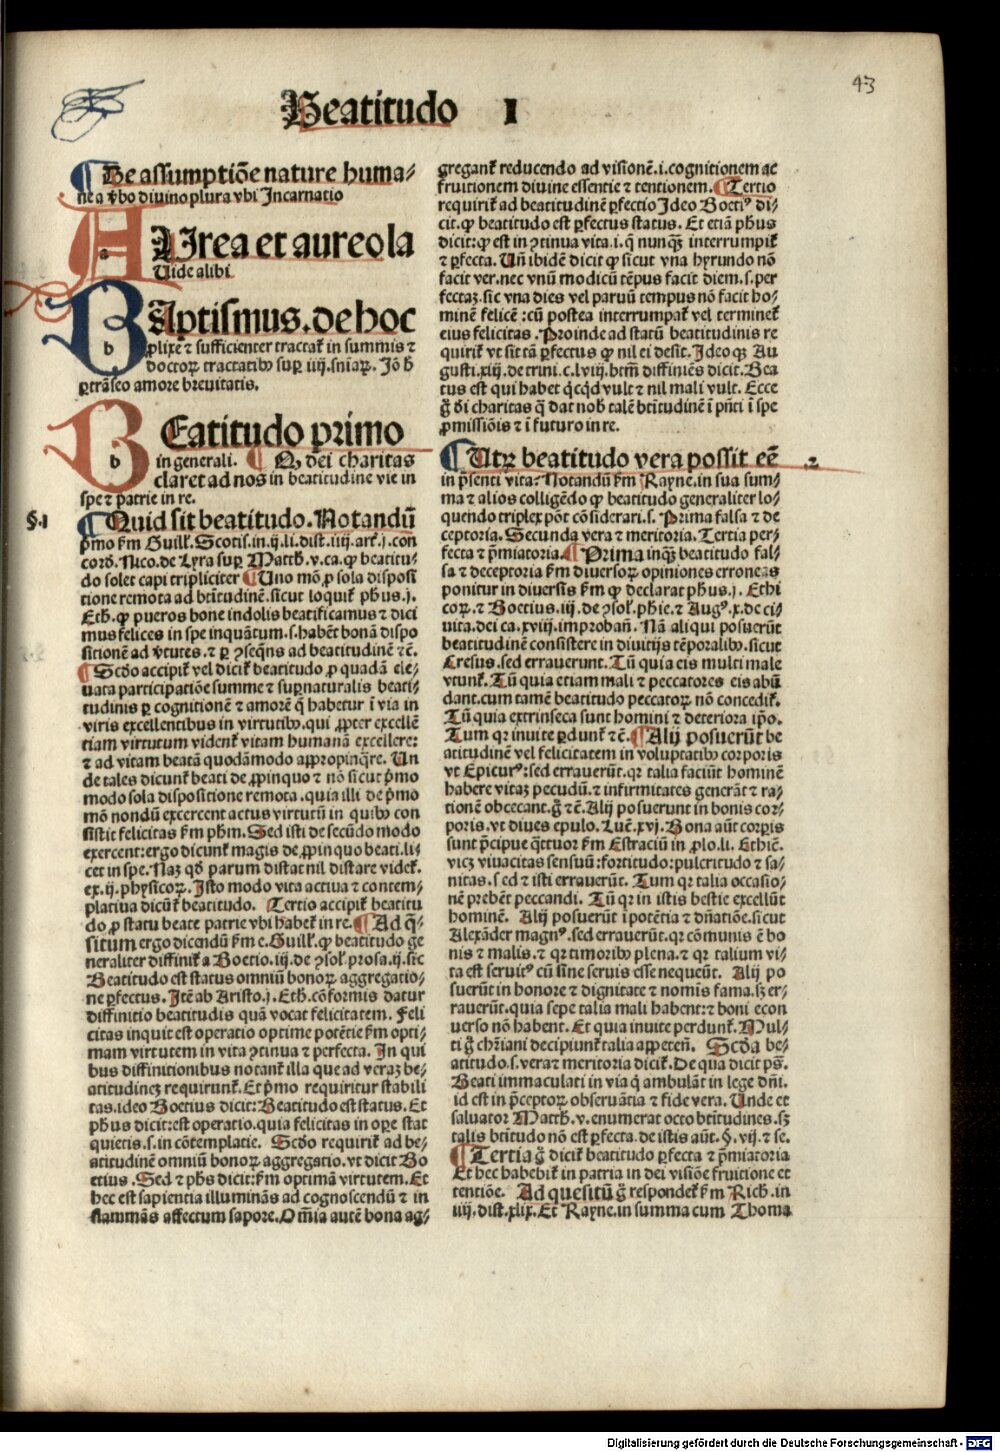 43
Beatitudo I
¶ De assumptiōe nature huma⸗
ne a v̄bo diuino plura vbi Incarnatio
AUrea et aureola
Uide alibi.
BAptismus. de hoc
ꝓlixe ⁊ sufficienter tractat̄ in summis ⁊
doctoꝝ tractatibꝰ suꝑ iiij. sn̄iaꝝ. Iō h̄
ꝑtrāseo amore breuitatis.
BEatitudo primo
in generali. ¶ Q, dei charitas
claret ad nos in beatitudine vie in
spe ⁊ patrie in re.
§.1
¶ Quid sit beatitudo. Notandū
pͥmo ẜm Guill̄. Scotiſ. in. ij. li. dist. iiij. art̄. j. con
cord̄. Nico. de Lyra suꝑ Matth. v. ca. ꝙ beatitu⸗
do solet capi tripliciter ¶ Uno mō ꝓ sola disposi
tione remota ad btītudinē. sicut loquit̄ phūs. j.
Eth. ꝙ pueros bone indolis beatificamus ⁊ dici
mus felices in spe inquātum. s. habēt bonā dispo
sitionē ad v̄tutes. ⁊ ꝑ ꝯseq̄ns ad beatitudinē ⁊c̄.
¶ Scd̄o accipit̄ vel dicit̄ beatitudo ꝓ quadā ele⸗
uata participatiōe summe ⁊ suꝑnaturalis beati⸗
tudinis ꝑ cognitionē ⁊ amorē q̄ habetur ī via in
viris excellentibus in virtutibꝰ. qui ꝓpter excellē
tiam virtutum vident̄ vitam humanā excellere:
⁊ ad vitam beatā quodāmodo appropinq̄re. Un
de tales dicunt̄ beati de ꝓpinquo ⁊ nō sicut pͥmo
modo sola dispositione remota. quia illi de pͥmo
mō nondū excercent actus virtutū in quibꝰ con
sistit felicitas ẜm phm̄. Sed isti de secūdo modo
exercent: ergo dicunt̄ magis de ꝓpinquo beati. li⸗
cet in spe. Naꝫ qd̄ parum distat nil distare videt̄.
ex. ij. physicoꝝ. Isto modo vita actiua ⁊ contem⸗
platiua dicūt̄ beatitudo. Tertio accipit̄ beatitu
do ꝓ statu beate patrie vbi habet̄ in re. ¶ Ad q̄⸗
situm ergo dicendū ẜm e. Guill̄. ꝙ beatitudo ge
neraliter diffinit̄ a Boetio. iij. de ꝯsol̄. prosa. ij. sic
Beatitudo est status omniū bonoꝝ aggregatio⸗
ne perfectus. Itē ab Aristo. j. Eth. cōformis datur
diffinitio beatitudis quā vocat felicitatem. Feli
citas inquit est operatio optime potētie ẜm opti⸗
mam virtutem in vita ꝯtinua ⁊ perfecta. In qui
bus diffinitionibus notant̄ illa que ad veraꝫ be⸗
atitudineꝫ requirunt̄. Et pͥmo requiritur stabili
tas. ideo Boetius dicit: Beatitudo est status. Et
phūs dicit: est operatio. quia felicitas in oꝑe stat
quietis. s. in cōtemplatiē. Scd̄o requirit̄ ad be⸗
atitudinē omniū bonoꝝ aggregatio. vt dicit Bo
etius. Sed ⁊ phūs dicit: ẜm optimā virtutem. Et
hec est sapientia illuminās ad cognoscendū ⁊ in
flammās affectum sapore. Om̄ia autē bona ag⸗
gregant̄ reducendo ad visionē. i. cognitionem ac
fruitionem diuine essentie ⁊ tentionem. ¶ Tertio
requirit̄ ad beatitudinē perfectio Ideo Boetiꝰ di⸗
cit. ꝙ beatitudo est ꝑfectus status. Et etiā phūs
dicit: ꝙ est in ꝯtinua vita. i. q̄ nunqͣꝫ interrumpit̄
⁊ ꝑfecta. Un̄ ibidē dicit ꝙ sicut vna hyrundo nō
facit ver. nec vnū modicū tēpus facit diem. s. per
fectaꝫ. sic vna dies vel paruū tempus nō facit ho⸗
minē felicē: cū postea interrumpat̄ vel terminet̄
eius felicitas. Proinde ad statū beatitudinis re
quirit̄ vt sit tā ꝑfectus ꝙ nil ei desit. Ideo qꝫ Au
gusti. xiij. de trini. c. lviij. btm̄ diffiniēs dicit. Bea
tus est qui habet qͥcqͥd vult ⁊ nil mali vult. Ecce
g̊ dei charitas q̄ dat nob̄ talē btītudinē ī pn̄ti ī spe
ꝓmissiōis ⁊ ī futuro in re.
¶ Utꝝ beatitudo vera possit eē 2
in p̄senti vita? Notandū ẜm Rayne. in sua sum⸗
ma ⁊ alios colligēdo ꝙ beatitudo generaliter lo⸗
quendo triplex pōt cōsiderari. s. Prima falsa ⁊ de
ceptoria. Secunda vera ⁊ meritoria. Tertia per⸗
fecta ⁊ p̄miatoria. ¶ Prima inqͣꝫ beatitudo fal⸗
sa ⁊ deceptoria ẜm diuersoꝝ opiniones erroneas
ponitur in diuersis ẜm ꝙ declarat phūs. j. Ethi
coꝝ. ⁊ Boetius. iij. de ꝯsol̄. phie. ⁊ Augꝰ. x. de ci⸗
uita. dei ca. xviij. improban̄. Nā aliqui posuerūt
beatitudinē consistere in diuitijs tēporalibꝰ. sicut
Cresus. sed errauerunt. Tū quia eis multi male
vtunt̄. Tū quia etiam mali ⁊ peccatores eis abū
dant. cum tamē beatitudo peccatoꝝ nō concedit̄.
Tū quia extrinseca sunt homini ⁊ deteriora ip̄o.
Tum qꝛ inuite ꝑdunt̄ ⁊c̄. ¶ Alij posuerūt be
atitudinē vel felicitatem in voluptatibꝰ corporis
vt Epicurꝰ: sed errauerūt. qꝛ talia faciūt hominē
habere vitaꝫ pecudū. ⁊ infirmitates generāt ⁊ ra⸗
tionē obcecant. g̊ ⁊c̄. Alij posuerunt in bonis cor⸗
poris. vt diues epulo. Luc̄. xvj. Bona aūt corꝑis
sunt p̄cipue q̄ttuor ẜm Estraciū in ꝓlo. li. Ethic̄.
vicꝫ viuacitas sensuū: fortitudo: pulcritudo ⁊ sa⸗
nitas. sed ⁊ isti errauerūt. Tum qꝛ talia occasio⸗
nē prebēt peccandi. Tū qꝛ in istis bestie excellūt
hominē. Alij posuerūt ī potētia ⁊ dn̄atiōe. sicut
Alexāder magnꝰ. sed errauerūt. qꝛ cōmunis ē bo
nis ⁊ malis. ⁊ qꝛ timoribꝰ plena. ⁊ qꝛ talium vi⸗
ta est seruitꝰ cū sine seruis esse nequeūt. Alij po
suerūt in honore ⁊ dignitate ⁊ nomīs fama. sꝫ er⸗
rauerūt. quia sepe talia mali habent: ⁊ boni econ
uerso nō habent. Et quia inuite perdunt̄. Mul⸗
ti g̊ chr̄iani decipiunt̄ talia appeten̄. Scd̄a be⸗
atitudo. s. vera ⁊ meritoria dicit̄. De qua dicit ps̄.
Beati immaculati in via q̄ ambulāt in lege dn̄i.
id est in p̄ceptoꝝ obseruātia ⁊ fide vera. Unde et
saluator Matth. v. enumerat octo btītudines. sꝫ
talis btītudo nō est ꝑfecta. de istis aūt. §. vij. ⁊ se.
¶ Tertia g̊ dicit̄ beatitudo ꝑfecta ⁊ p̄miatoria
Et hec habebit̄ in patria in dei visiōe fruitione et
tentiōe. Ad quesitū g̊ respondet̄ ẜm Rich. in
iiij. dist. xlix. Et Rayne. in summa cum Thoma
Digitalisierung gefördert durch die Deutsche Forschungsgemeinschaft - DFG